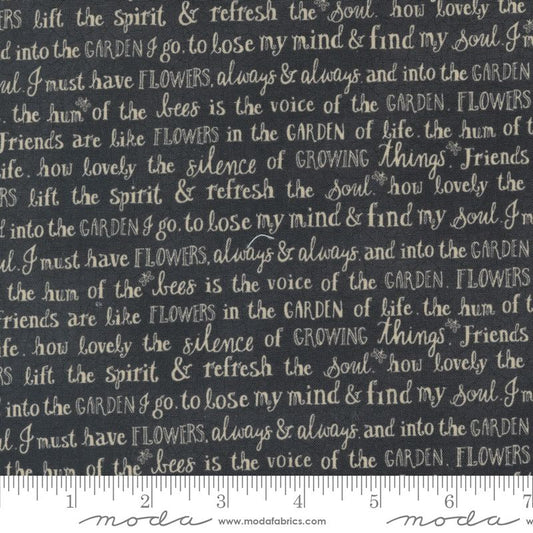 RS lift the Spirit & refresh the Soul. how lovely the
d into the GARDEN I go. to lose my mind & find my Soul. I m
ul. I must have FLOWERS, always & always. and into the GARDEN
. the hum of the bees is the voice of the GARDEN. FLOWERS
Friends are like FLOWERS in the GARDEN of life. the hum of t
ife. how lovely the silence of GROWING things. Friends
RS lift the Spirit & refresh the Soul. how lovely the
d into the GARDEN I go. to lose my mind & find my Soul. I m
ul. I must have FLOWERS, always & always. and into the GARDEN
. the hum of the bees is the voice of the GARDEN. FLOWERS
riends are like FLOWERS in the GARDEN of life. the hum of t
fe. how lovely the silence of GROWING things. Friends
RS lift the Spirit & refresh the Soul. how lovely the
d into the GARDEN I go. to lose my mind & find my Soul. I m
l. I must have FLOWERS, always & always. and into the GARDEN
the hum of the bees is the voice of the GARDEN. FLOWERS
1 2 3 4 5 6 7
moda www.modafabrics.com moda